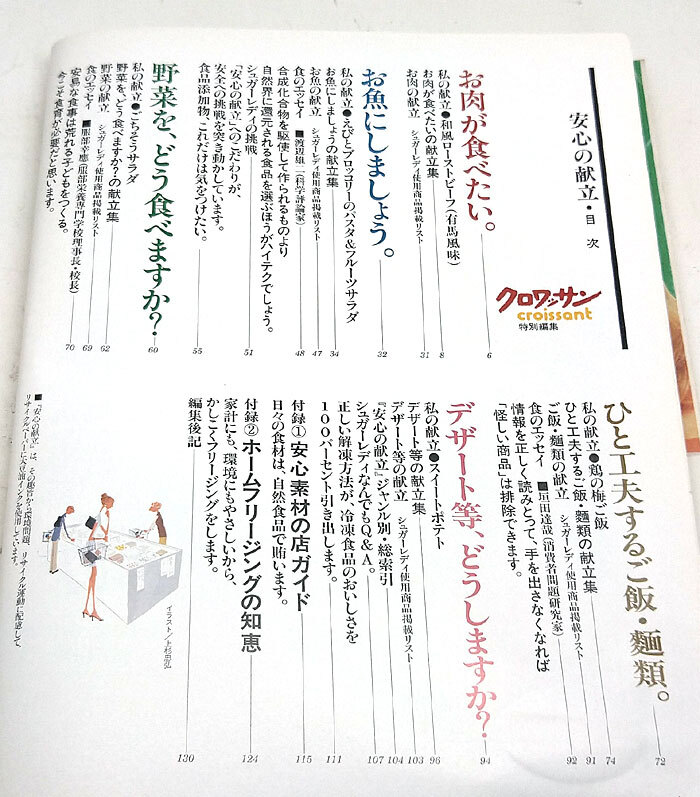 安心の献立・目次
クロワッサン
croissant
特別編集
お肉が食べたい。 6
私の献立●和風ローストビーフ(有馬風味) 8
お肉が食べたいの献立集
お肉の献立 シュガーレディ使用商品掲載リスト 31
お魚にしましょう。 32
私の献立●えびとブロッコリーのパスタ&フルーツサラダ 34
お魚にしましょうの献立集
お魚の献立 シュガーレディ使用商品掲載リスト 47
食のエッセイ ■渡辺雄二(科学評論家) 48
合成化合物を駆使して作られるものより
自然界に還元される食品を選ぶほうがハイテクでしょう。
シュガーレディの挑戦 51
「安心の献立」へのこだわりが、
安全への挑戦を突き動かしています。
食品添加物、これだけは気をつけたい。 55
野菜を、どう食べますか? 60
私の献立●ごちそうサラダ
野菜を、どう食べますか?の献立集 62
野菜の献立 シュガーレディ使用商品掲載リスト 69
食のエッセイ ■服部幸應(服部栄養専門学校理事長・校長) 70
安易な食事は荒れる子どもをつくる。
今こそ食育が必要だと思います。
ひと工夫するご飯・麺類。 72
私の献立●鶏の梅ご飯 74
ひと工夫するご飯・麺類の献立集
ご飯・麺類の献立 シュガーレディ使用商品掲載リスト 91
食のエッセイ ■垣田達哉(消費者問題研究家) 92
情報を正しく読みとって、手を出さなくなれば
「怪しい商品」は排除できます。
デザート等、どうしますか? 94
私の献立●スイートポテト 96
デザート等の献立集
デザート等の献立 シュガーレディ使用商品掲載リスト 103
『安心の献立』ジャンル別・総索引 104
シュガーレディなんでもQ&A。 107
正しい解凍方法が、冷凍食品のおいしさを
100パーセント引き出します。 111
付録①安心素材の店ガイド 115
日々の食材は、自然食品で賄います。
付録②ホームフリージングの知恵 124
家計にも、環境にもやさしいから、
かしこくフリージングをします。
編集後記 130
イラスト/上杉忠弘
■『安心の献立』は、その趣旨から環境問題、リサイクル運動に配慮して
リサイクルペーパーに大豆油インクを使用しています。